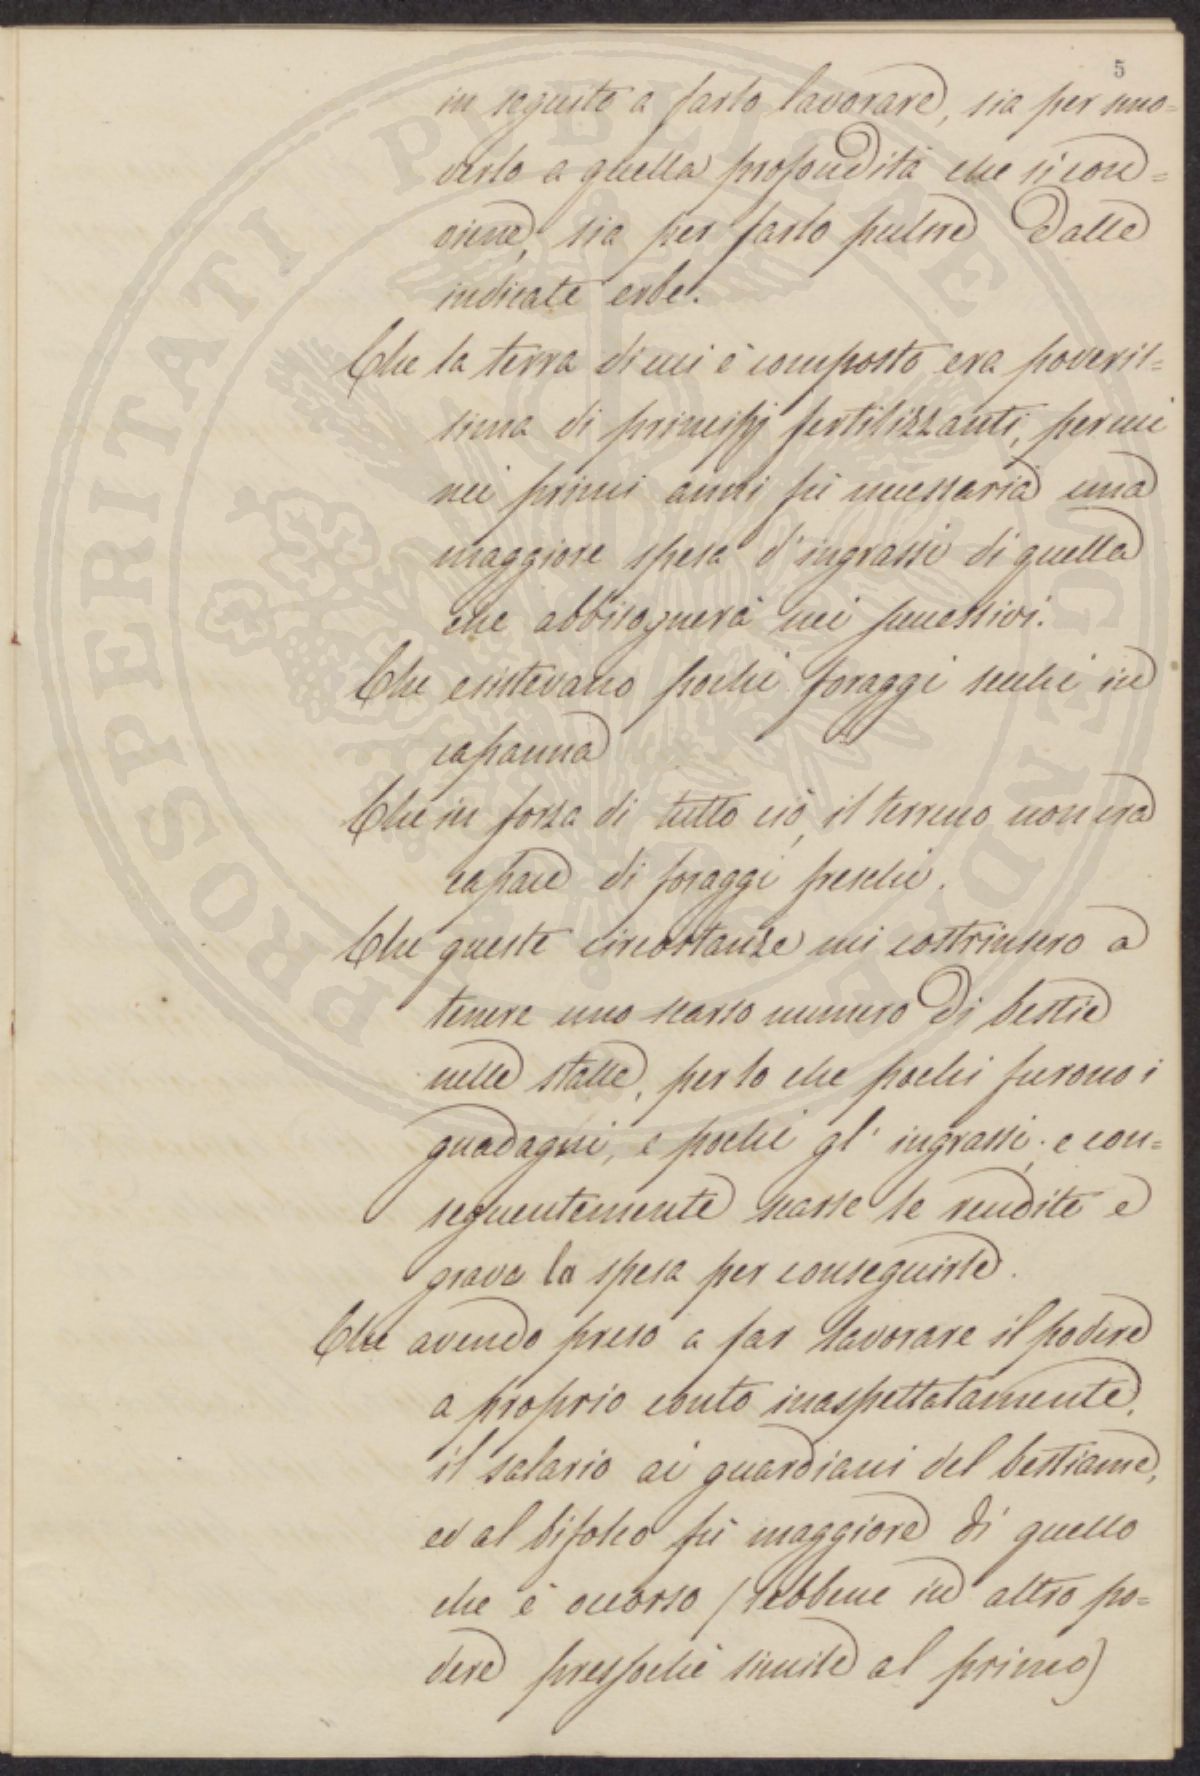 5
in seguito a farlo lavorare, sia per muo=
verlo a quella profondità che si con=
viene, sia per farlo pulire dalle
indicate erbe.
Che la terra di cui è composto era poveris=
sima di principj fertilizzanti, per cui
nei primi anni fù necessaria una
maggiore spesa d'ingrassi di quella
che abbisognerà nei successivi.
Che esistevano pochi foraggi secchi in
capanna
Che in forza di tutto ciò, il terreno non era
capace di foraggi freschi.
Che queste circostanze mi costrinsero a
tenere uno scarso numero di bestie
nelle stalle, per lo che pochi furono i
guadagni, e pochi gl'ingrassi; e con=
seguentemente scarse le rendite e
grave la spesa per conseguirle.
Che avendo preso a far lavorare il podere
a proprio conto inaspettatamente,
il salario ai guardiani del bestiame,
ed al bifolco fù maggiore di quello
che è occorso (sebbene in altro po=
dere presspochè simile al primo)
PROSPERITATI PUBLICAE AUGENDAE